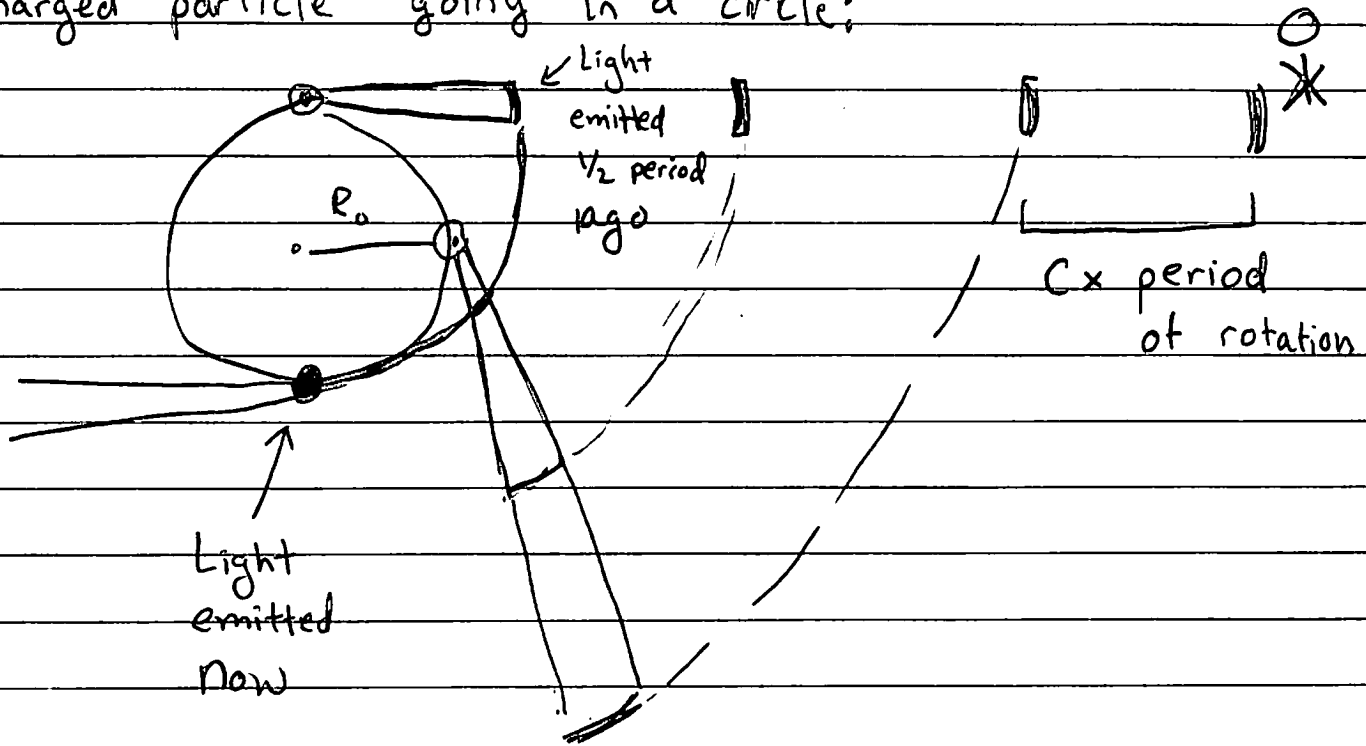 harged particle going in a circle:
Light
emitted
1/2 period
ago
R₀
C x period
of rotation
Light
emitted
now